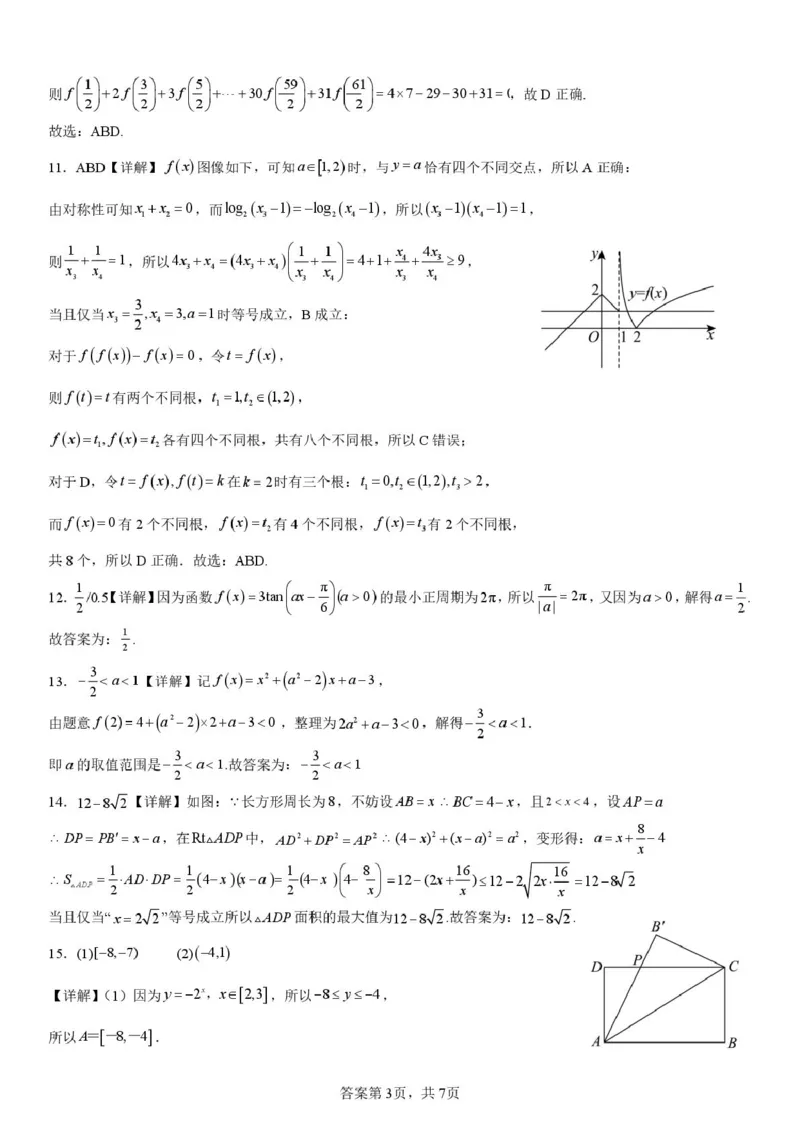 则f(1/2)+2f(3/2)+3f(5/2)+⋯+30f(59/2)+31f(61/2)=4×7−29−30+31=(，故D正确.
故选：ABD.
11．ABD【详解】f(x)图像如下，可知a∈[1,2)时，与y=a恰有四个不同交点，所以A正确：
由对称性可知x₁+x₂=0，而log₂(x₃−1)=−log₂(x₄−1)，所以(x₃−1)(x₄−1)=1，
则1/x₃+1/x₄=1，所以4x₃+x₄=(4x₃+x₄)(1/x₃+1/x₄)=4+1+x₄/x₃+4x₃/x₄≥9，
当且仅当x₃=3/2,x₄=3,a=1时等号成立，B成立：
对于f(f(x))−f(x)=0，令t=f(x)，
则f(t)=t有两个不同根，t₁=1,t₂∈(1,2)，
f(x)=t₁,f(x)=t₂各有四个不同根，共有八个不同根，所以C错误；
对于D，令t=f(x),f(t)=k在k=2时有三个根：t₁=0,t₂∈(1,2),t₃>2，
而f(x)=0有2个不同根，f(x)=t₂有4个不同根，f(x)=t₃有2个不同根，
共8个，所以D正确．故选：ABD.
y
2
y=f(x)
O 1 2 x
12．1/2/0.5【详解】因为函数f(x)=3tan(ax−π/6)(a>0)的最小正周期为2π，所以π/|a|=2π，又因为a>0，解得a=1/2.
故答案为：1/2.
13．−3/2<a<1【详解】记f(x)=x²+(a²−2)x+a−3，
由题意f(2)=4+(a²−2)×2+a−3<0，整理为2a²+a−3<0，解得−3/2<a<1.
即a的取值范围是−3/2<a<1.故答案为：−3/2<a<1
14．12−8√2【详解】如图：∵长方形周长为8，不妨设AB=x∴BC=4−x，且2<x<4，设AP=a
∴DP=PB′=x−a，在Rt△ADP中，AD²+DP²=AP²∴(4−x)²+(x−a)²=a²，变形得：a=x+8/x−4
∴S△ADP=1/2·AD·DP=1/2(4−x)(x−a)=1/2(4−x)(4−8/x)=12−(2x+16/x)≤12−2√(2x·16/x)=12−8√2
当且仅当“x=2√2”等号成立所以△ADP面积的最大值为12−8√2.故答案为：12−8√2.
15．(1)[−8,−7) (2)(−4,1)
【详解】（1）因为y=−2ˣ，x∈[2,3]，所以−8≤y≤−4，
所以A=[−8,−4]．
B′
D P C
A B
答案第3页，共7页